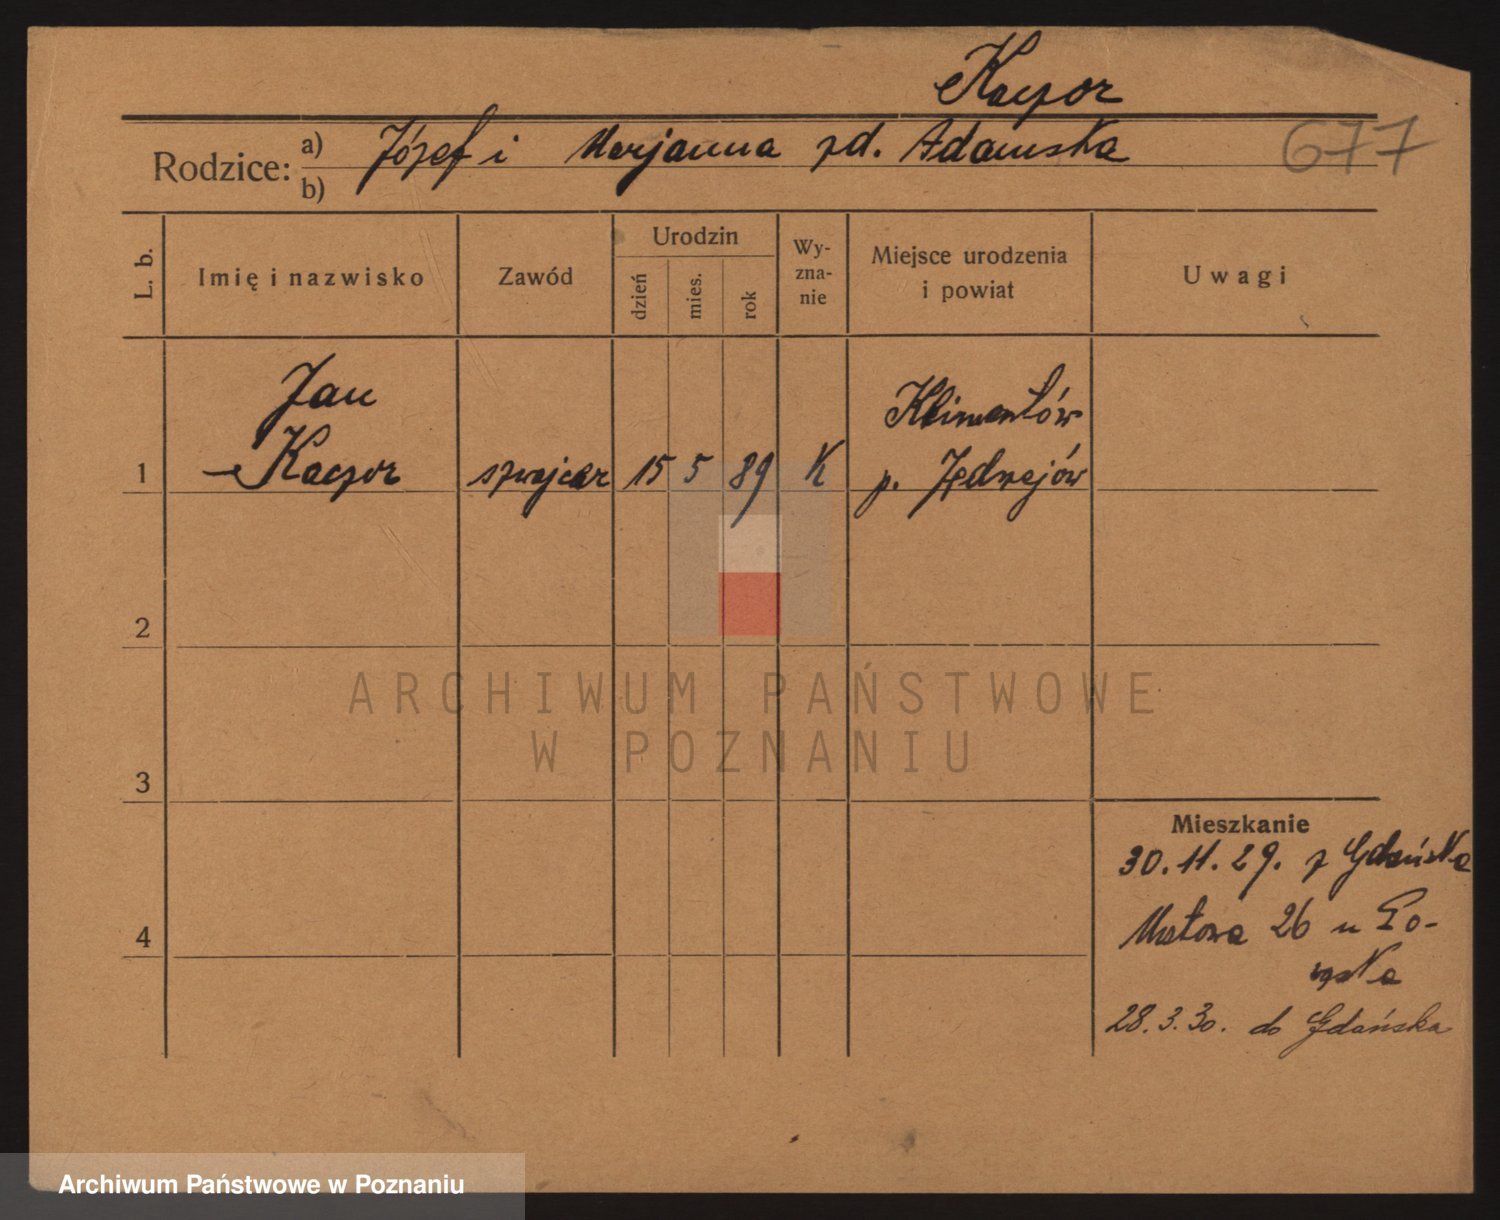 Kaczor
Rodzice: a) Józef i Marjanna zd. Adamska
677
b)
L. b.
Imię i nazwisko
Zawód
Urodzin
dzień
mies.
rok
Wy-
zna-
nie
Miejsce urodzenia
i powiat
Uwagi
Jan
Klimontów
1 Kaczor szwajcar 15 5 89 K p. Jędrzejów
2
ARCHIWUM PAŃSTWOWE
W POZNANIU
3
Mieszkanie
30.11.29. z Gdańska
26 u
4
28.3.30. do Gdańska
Archiwum Państwowe w Poznaniu